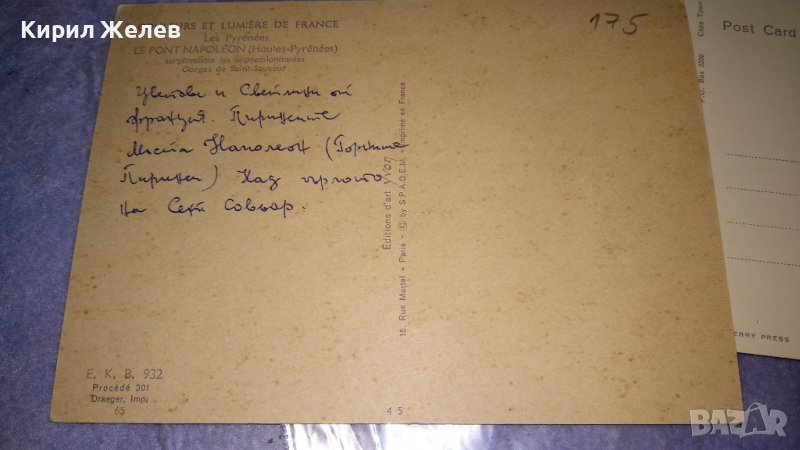 Кирил Желев
EURS ET LUMIÈRE DE FRANCE
Les Pyrénées
LE PONT NAPOLÉON (Hautes-Pyrénées)
surplombant les impressionnantes
Gorges de Saint-Sauveur
175
Цветове и Светлини от
франция. Пиринеите
Моста Наполеон (Горните
Пиринеи) Над гърлото
на Сент Совьор.
Éditions d'art yvon
15, Rue Martel • Paris - © by S.P.A.D.E.M. - Imprimé en France
E. K. B. 932
Procédé 301
Draeger, Imp.
65
4 5
Post Card
P.O. Box 2000 Cape Town
ERRY PRESS
BAZAR